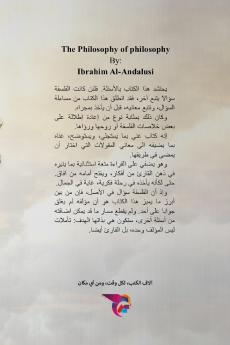 The Philosophy of philosophy
By:
Ibrahim Al-Andalusi
يحتشد هذا الكتاب بالأسئلة. فلئن كانت الفلسفة
سؤالا يتبع آخر، فقد انطلق هذا الكتاب من مساءلة
السؤال، وتتبع معانيه، قبل أن يأخذ بمجراه.
وكان ذلك بمثابة نوع من إعادة إطلالة على
بعض خلاصات الفلسفة أو روحها ورؤاها.
إنه كتاب غني بما يستجلي، ويستوضح، غناه
بما يضيفه الى معاني المقولات التي اختار أن
يمضي في طريقها.
وهو يضفي على القراءة متعة استثنائية بما يثيره
في ذهن القارئ من أفكار، ويفتح أمامه من آفاق.
حتى لكأنه يأخذه في رحلة فكرية، غاية في الجمال.
وإذ أن الفلسفة سؤال في الأصل، فإن من بين
أبرز ما يميز هذا الكتاب هو أن مؤلفه لم يغلق
جوابا على أحد. ولم يقطع مسار ما قد يمكن اضافته
من أسئلة أخرى، ستكون هي بذاتها الهدف: تأملات
ليس المؤلف وحده، بل القارئ أيضا.
آلاف الكتب، لكل وقت، ومن أي مكان